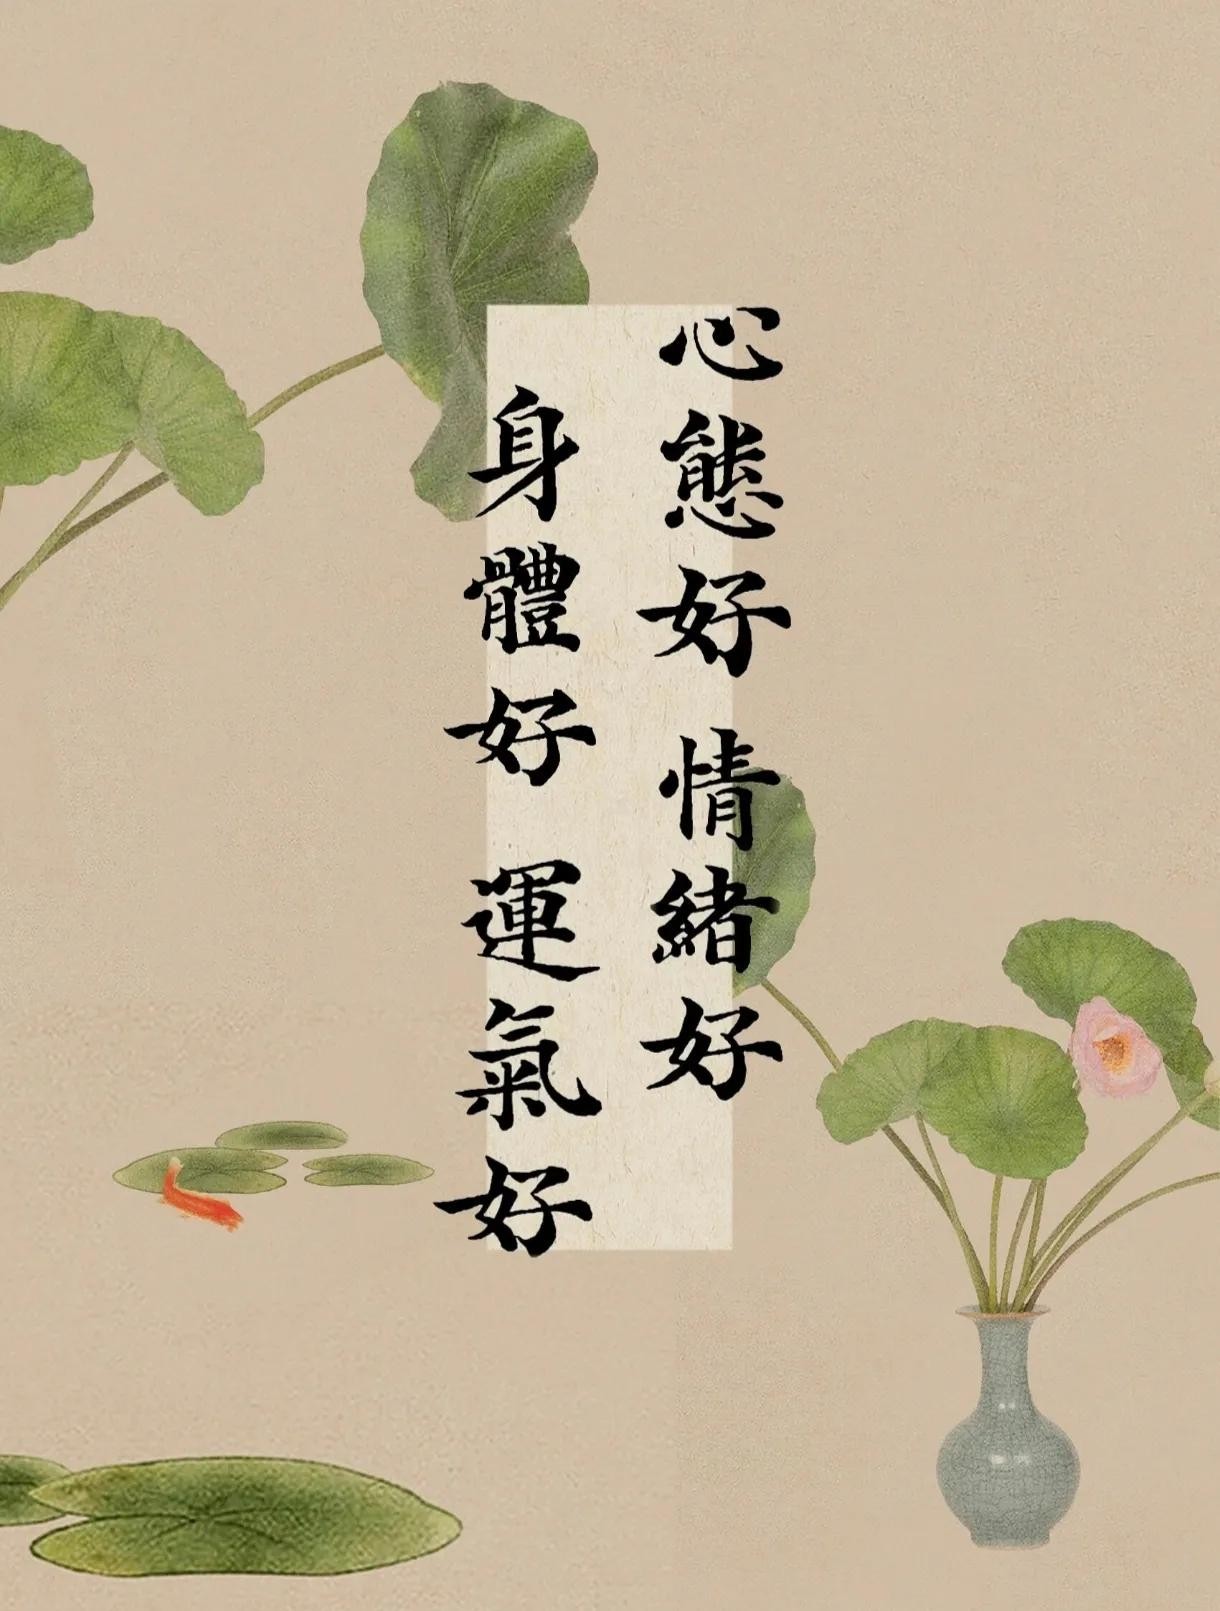 心態好 情緒好
身體好 運氣好